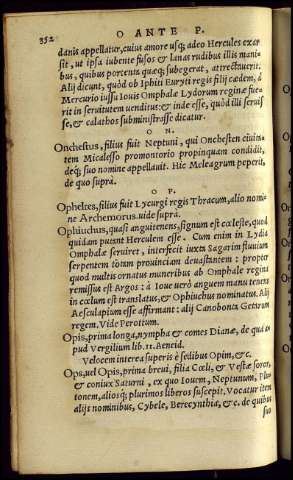 352
O ANTE P.
danis appellatur, cuius amore usq; adeo Hercules exar
sit, ut ipsa iubente fusos & lanas rudibus illis mani
bus, quibus portenta quæq; subegerat, attrectauerit.
Alij dicunt, quòd ob Iphiti Euryti regis filij cædem, à
Mercurio iussu Iouis Omphalæ Lydorum reginæ fue-
rit in seruitutem uenditus: & inde esse, quòd illi seruis
se, & calathos subministrasse dicatur.
O N.
Onchestus, filius fuit Neptuni, qui Onchestem ciuita
tem Micalesso promontorio propinquam condidit,
deq; suo nomine appellauit. Hic Meleagrum peperit,
de quo suprà.
O P.
Opheltes, filius fuit Lycurgi regis Thracum, alio nomi
ne Archemorus. uide supra.
Ophiuchus, quasi anguitenens, signum est cœleste, quod
quidam putant Herculem esse. Cum enim in Lydia
Omphalæ seruiret, interfecit iuxta Sagarim fluuium
serpentem totam prouinciam deuastantem: propter
quod multis ornatus muneribus ab Omphale regina
remissus est Argos: à Ioue uerò anguem manu tenens
in cœlum est translatus, & Ophiuchus nominatus. Alij
Aesculapium esse affirmant: alij Canobonta Getarum
regem. Vide Perottum.
Opis, prima longa, nympha & comes Dianæ, de qua a-
pud Vergilium lib. 11. Aeneid.
Velocem interea superis è sedibus Opim, &c.
Ops, uel Opis, prima breui, filia Cœli, & Vestæ soror,
& coniux Saturni, ex quo Iouem, Neptunum, Plu
tonem, aliosq; plurimos liberos suscepit. Vocatur item
alijs nominibus, Cybele, Berecynthia, &c. de quibus
suo